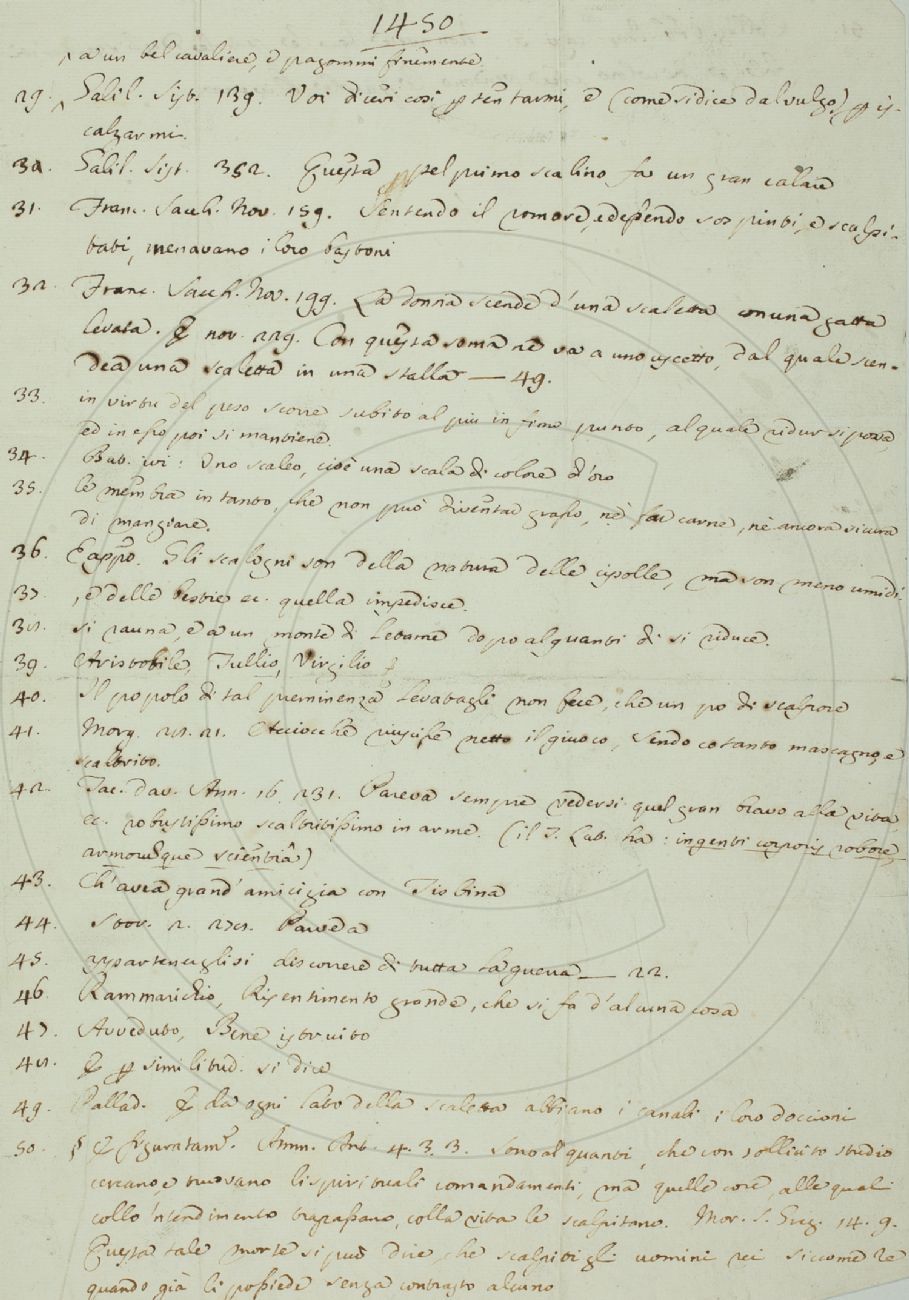 1450
a un bel cavaliere, e pagommi finemente
29. Galil. Sist. 139. Voi dicevi così p tentarmi, e (come si dice dal vulgo) p is-
calzarmi.
30. Galil. Sist. 352. Questa pel primo scalino fa un gran calare
31. Franc. Sacch. Nov. 159. Sentendo il romore, ed essendo sospinti, e scalpi-
tati, menavano i loro bastoni
32. Franc. Sacch. Nov. 199. La donna scende d'una scaletta con una gatta
levata. E nov. 229. Con questa soma ne va a uno uscetto, dal quale scen-
dea una scaletta in una stalla — 49.
33. in virtu del peso scorre subito al più infimo punto, al quale ridursi possa,
ed in esso poi si mantiene.
34. But. ivi: Uno scaleo, cioè una scala di colore d'oro
35. le membra in tanto, che non può diventar grasso, nè far carne, nè ancora si cura
di mangiare.
36. Gli scalogni son della natura delle cipolle, ma son meno umidi.
37. , e delle bestie ec. quella impedisce.
38. si rauna, e a un monte di letame dopo alquanti di si riduce.
39. Aristotile, Tullio, Virgilio
40. Il popolo di tal preminenza levatagli non fece, che un po di scalpore
41. Morg. 28. 21. Acciocchè riuscisse netto il giuoco, Sendo cotanto mascagno, e
scaltrito.
42. Tac. Dav. Ann. 16. 231. Pareva sempre vedersi quel gran bravo alla vita,
ec. robustissimo scaltritissimo in arme. (il T. Lat. ha: ingenti corporis robore
armorumque scientia)
43. Ch'avea grand'amicizia con Tisbina
44. Stor. 2. 278. Pareva
45. apparteneuglisi discorrere di tutta la guerra — 22.
46. Rammarichio, Risentimento grande, che si fa d'alcuna cosa
47. Avveduto, Bene istruito
48. E p similitud. si dice
49. Pallad. E da ogni lato della scaletta abbiano i canali i loro doccioni
50. § E figuratam. Amm. Ant. 4. 3. 3. Sono alquanti, che con sollicito studio
cercano, e truovano li spirituali comandamenti, ma quelle cose, alle quali
collo 'ntendimento trapassano, colla vita le scalpitano. Mor. S. Greg. 14. 9.
Questa tale morte si può dire che scalpiti gli uomini rei siccome Re
quando già li possiede senza contrasto alcuno